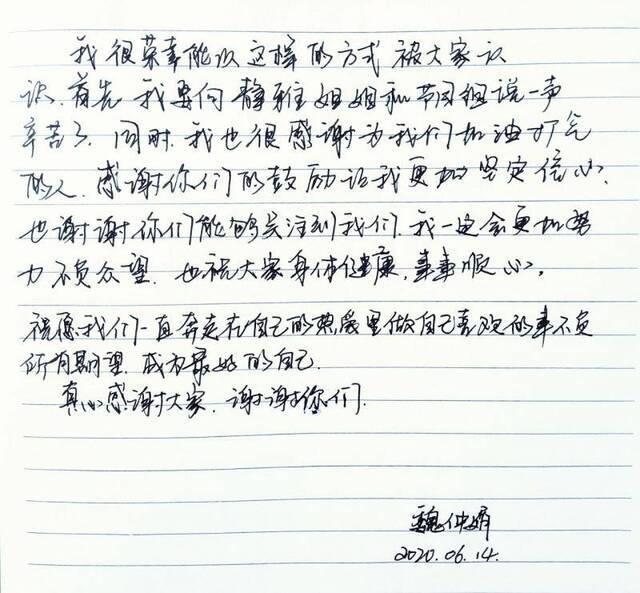 我很荣幸能以这样的方式被大家认
识.首先我要向静雅姐姐和节目组说一声
辛苦了.同时.我也很感谢为我们加油打气
的人.感谢你们的鼓励让我更加坚定信心.
也谢谢你们能够关注到我们.我一定会更加努
力不负众望.也祝大家身体健康,事事顺心.
祝愿我们一直奔走在自己的热爱里做自己喜欢的事不负
所有期望.成为最好的自己.
真心感谢大家.谢谢你们.
魏仲娟
2020.06.14.